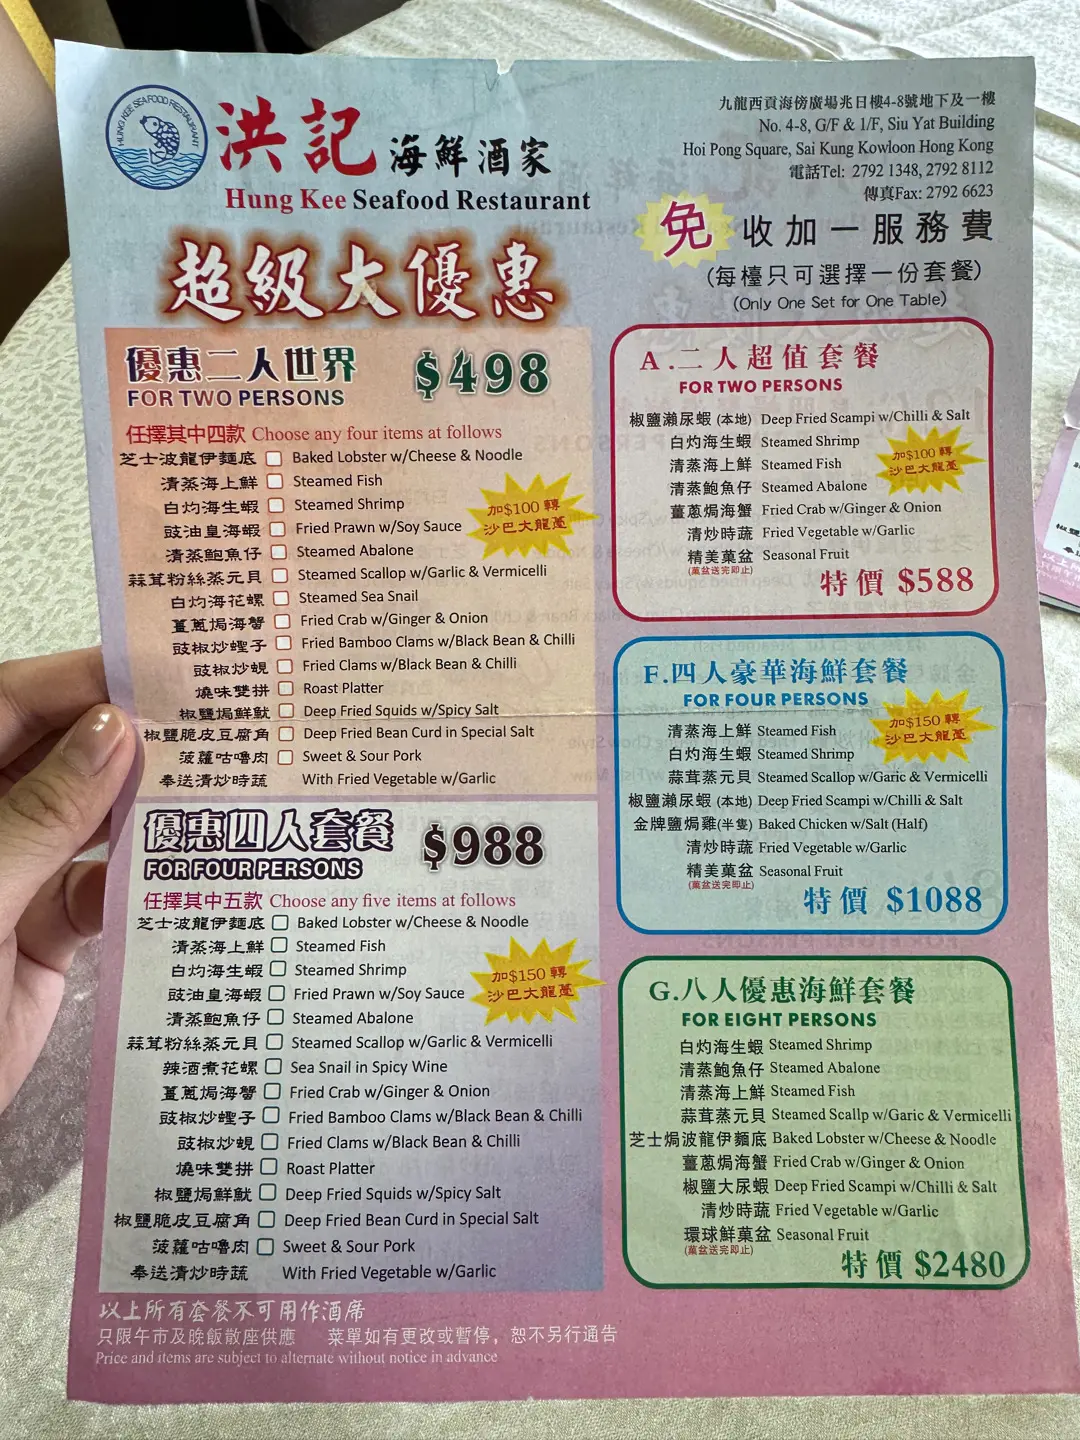 HUNG KEE SEAFOOD RESTAURANT
洪記海鮮酒家
Hung Kee Seafood Restaurant
九龍西貢海傍廣場兆日樓4-8號地下及一樓
No. 4-8, G/F & 1/F, Siu Yat Building
Hoi Pong Square, Sai Kung Kowloon Hong Kong
電話Tel: 2792 1348, 2792 8112
傳真Fax: 2792 6623
超級大優惠
免收加一服務費
(每檯只可選擇一份套餐)
(Only One Set for One Table)
優惠二人世界 $498
FOR TWO PERSONS
任擇其中四款 Choose any four items at follows
芝士波龍伊麵底 Baked Lobster w/Cheese & Noodle
清蒸海上鮮 Steamed Fish
白灼海生蝦 Steamed Shrimp
豉油皇海蝦 Fried Prawn w/Soy Sauce
清蒸鮑魚仔 Steamed Abalone
蒜茸粉絲蒸元貝 Steamed Scallop w/Garlic & Vermicelli
白灼海花螺 Steamed Sea Snail
薑蔥焗海蟹 Fried Crab w/Ginger & Onion
豉椒炒蟶子 Fried Bamboo Clams w/Black Bean & Chilli
豉椒炒蜆 Fried Clams w/Black Bean & Chilli
燒味雙拼 Roast Platter
椒鹽焗鮮魷 Deep Fried Squids w/Spicy Salt
椒鹽脆皮豆腐角 Deep Fried Bean Curd in Special Salt
菠蘿咕嚕肉 Sweet & Sour Pork
奉送清炒時蔬 With Fried Vegetable w/Garlic
加$100 轉
沙巴大龍躉
優惠四人套餐 $988
FOR FOUR PERSONS
任擇其中五款 Choose any five items at follows
芝士波龍伊麵底 Baked Lobster w/Cheese & Noodle
清蒸海上鮮 Steamed Fish
白灼海生蝦 Steamed Shrimp
豉油皇海蝦 Fried Prawn w/Soy Sauce
清蒸鮑魚仔 Steamed Abalone
蒜茸粉絲蒸元貝 Steamed Scallop w/Garlic & Vermicelli
辣酒煮花螺 Sea Snail in Spicy Wine
薑蔥焗海蟹 Fried Crab w/Ginger & Onion
豉椒炒蟶子 Fried Bamboo Clams w/Black Bean & Chilli
豉椒炒蜆 Fried Clams w/Black Bean & Chilli
燒味雙拼 Roast Platter
椒鹽焗鮮魷 Deep Fried Squids w/Spicy Salt
椒鹽脆皮豆腐角 Deep Fried Bean Curd in Special Salt
菠蘿咕嚕肉 Sweet & Sour Pork
奉送清炒時蔬 With Fried Vegetable w/Garlic
加$150 轉
沙巴大龍躉
A.二人超值套餐
FOR TWO PERSONS
椒鹽瀨尿蝦 (本地) Deep Fried Scampi w/Chilli & Salt
白灼海生蝦 Steamed Shrimp
清蒸海上鮮 Steamed Fish
清蒸鮑魚仔 Steamed Abalone
薑蔥焗海蟹 Fried Crab w/Ginger & Onion
清炒時蔬 Fried Vegetable w/Garlic
精美菓盆 Seasonal Fruit
(菓盆送完即止)
特價 $588
加$100 轉
沙巴大龍躉
F.四人豪華海鮮套餐
FOR FOUR PERSONS
清蒸海上鮮 Steamed Fish
白灼海生蝦 Steamed Shrimp
蒜茸蒸元貝 Steamed Scallop w/Garic & Vermicelli
椒鹽瀨尿蝦 (本地) Deep Fried Scampi w/Chilli & Salt
金牌鹽焗雞(半隻) Baked Chicken w/Salt (Half)
清炒時蔬 Fried Vegetable w/Garlic
精美菓盆 Seasonal Fruit
(菓盆送完即止)
特價 $1088
加$150 轉
沙巴大龍躉
G.八人優惠海鮮套餐
FOR EIGHT PERSONS
白灼海生蝦 Steamed Shrimp
清蒸鮑魚仔 Steamed Abalone
清蒸海上鮮 Steamed Fish
蒜茸蒸元貝 Steamed Scallp w/Garic & Vermicelli
芝士焗波龍伊麵底 Baked Lobster w/Cheese & Noodle
薑蔥焗海蟹 Fried Crab w/Ginger & Onion
椒鹽大尿蝦 Deep Fried Scampi w/Chilli & Salt
清炒時蔬 Fried Vegetable w/Garlic
環球鮮菓盆 Seasonal Fruit
(菓盆送完即止)
特價 $2480
以上所有套餐不可用作酒席
只限午市及晚飯散座供應 菜單如有更改或暫停，恕不另行通告
Price and items are subject to alternate without notice in advance